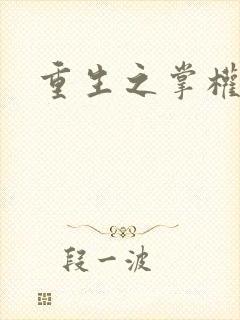 重生之掌權
段一波